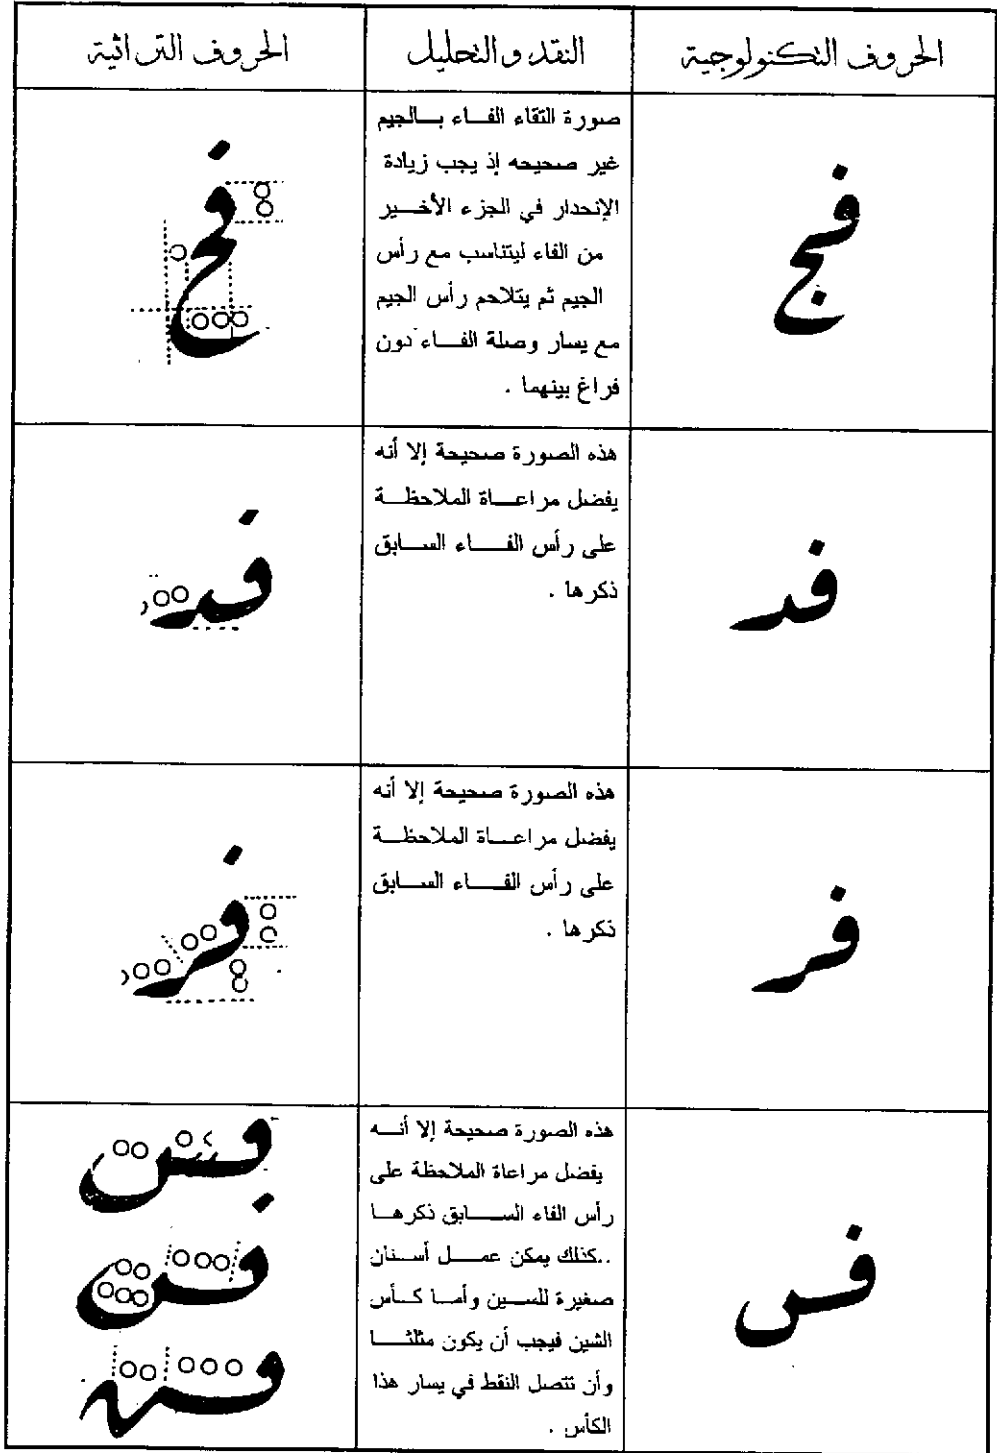 الحروف التكنولوجية
النقد والتحليل
الحروف التراثية
فج
صورة التقاء الفاء بالجيم
غير صحيحه إذ يجب زيادة
الإنحدار في الجزء الأخير
من الفاء ليتناسب مع رأس
الجيم ثم يتلاحم رأس الجيم
مع يسار وصلة الفاء دون
فراغ بينهما .
فد
هذه الصورة صحيحة إلا أنه
يفضل مراعاة الملاحظة
على رأس الفاء السابق
ذكرها .
فد
فر
هذه الصورة صحيحة إلا أنه
يفضل مراعاة الملاحظة
على رأس الفاء السابق
ذكرها .
فر
فس
هذه الصورة صحيحة إلا أنه
يفضل مراعاة الملاحظة على
رأس الفاء السابق ذكرها
..كذلك يمكن عمل أسنان
صغيرة للسين وأما كأس
الشين فيجب أن يكون مثلثا
وأن تتصل النقط في يسار هذا
الكأس .